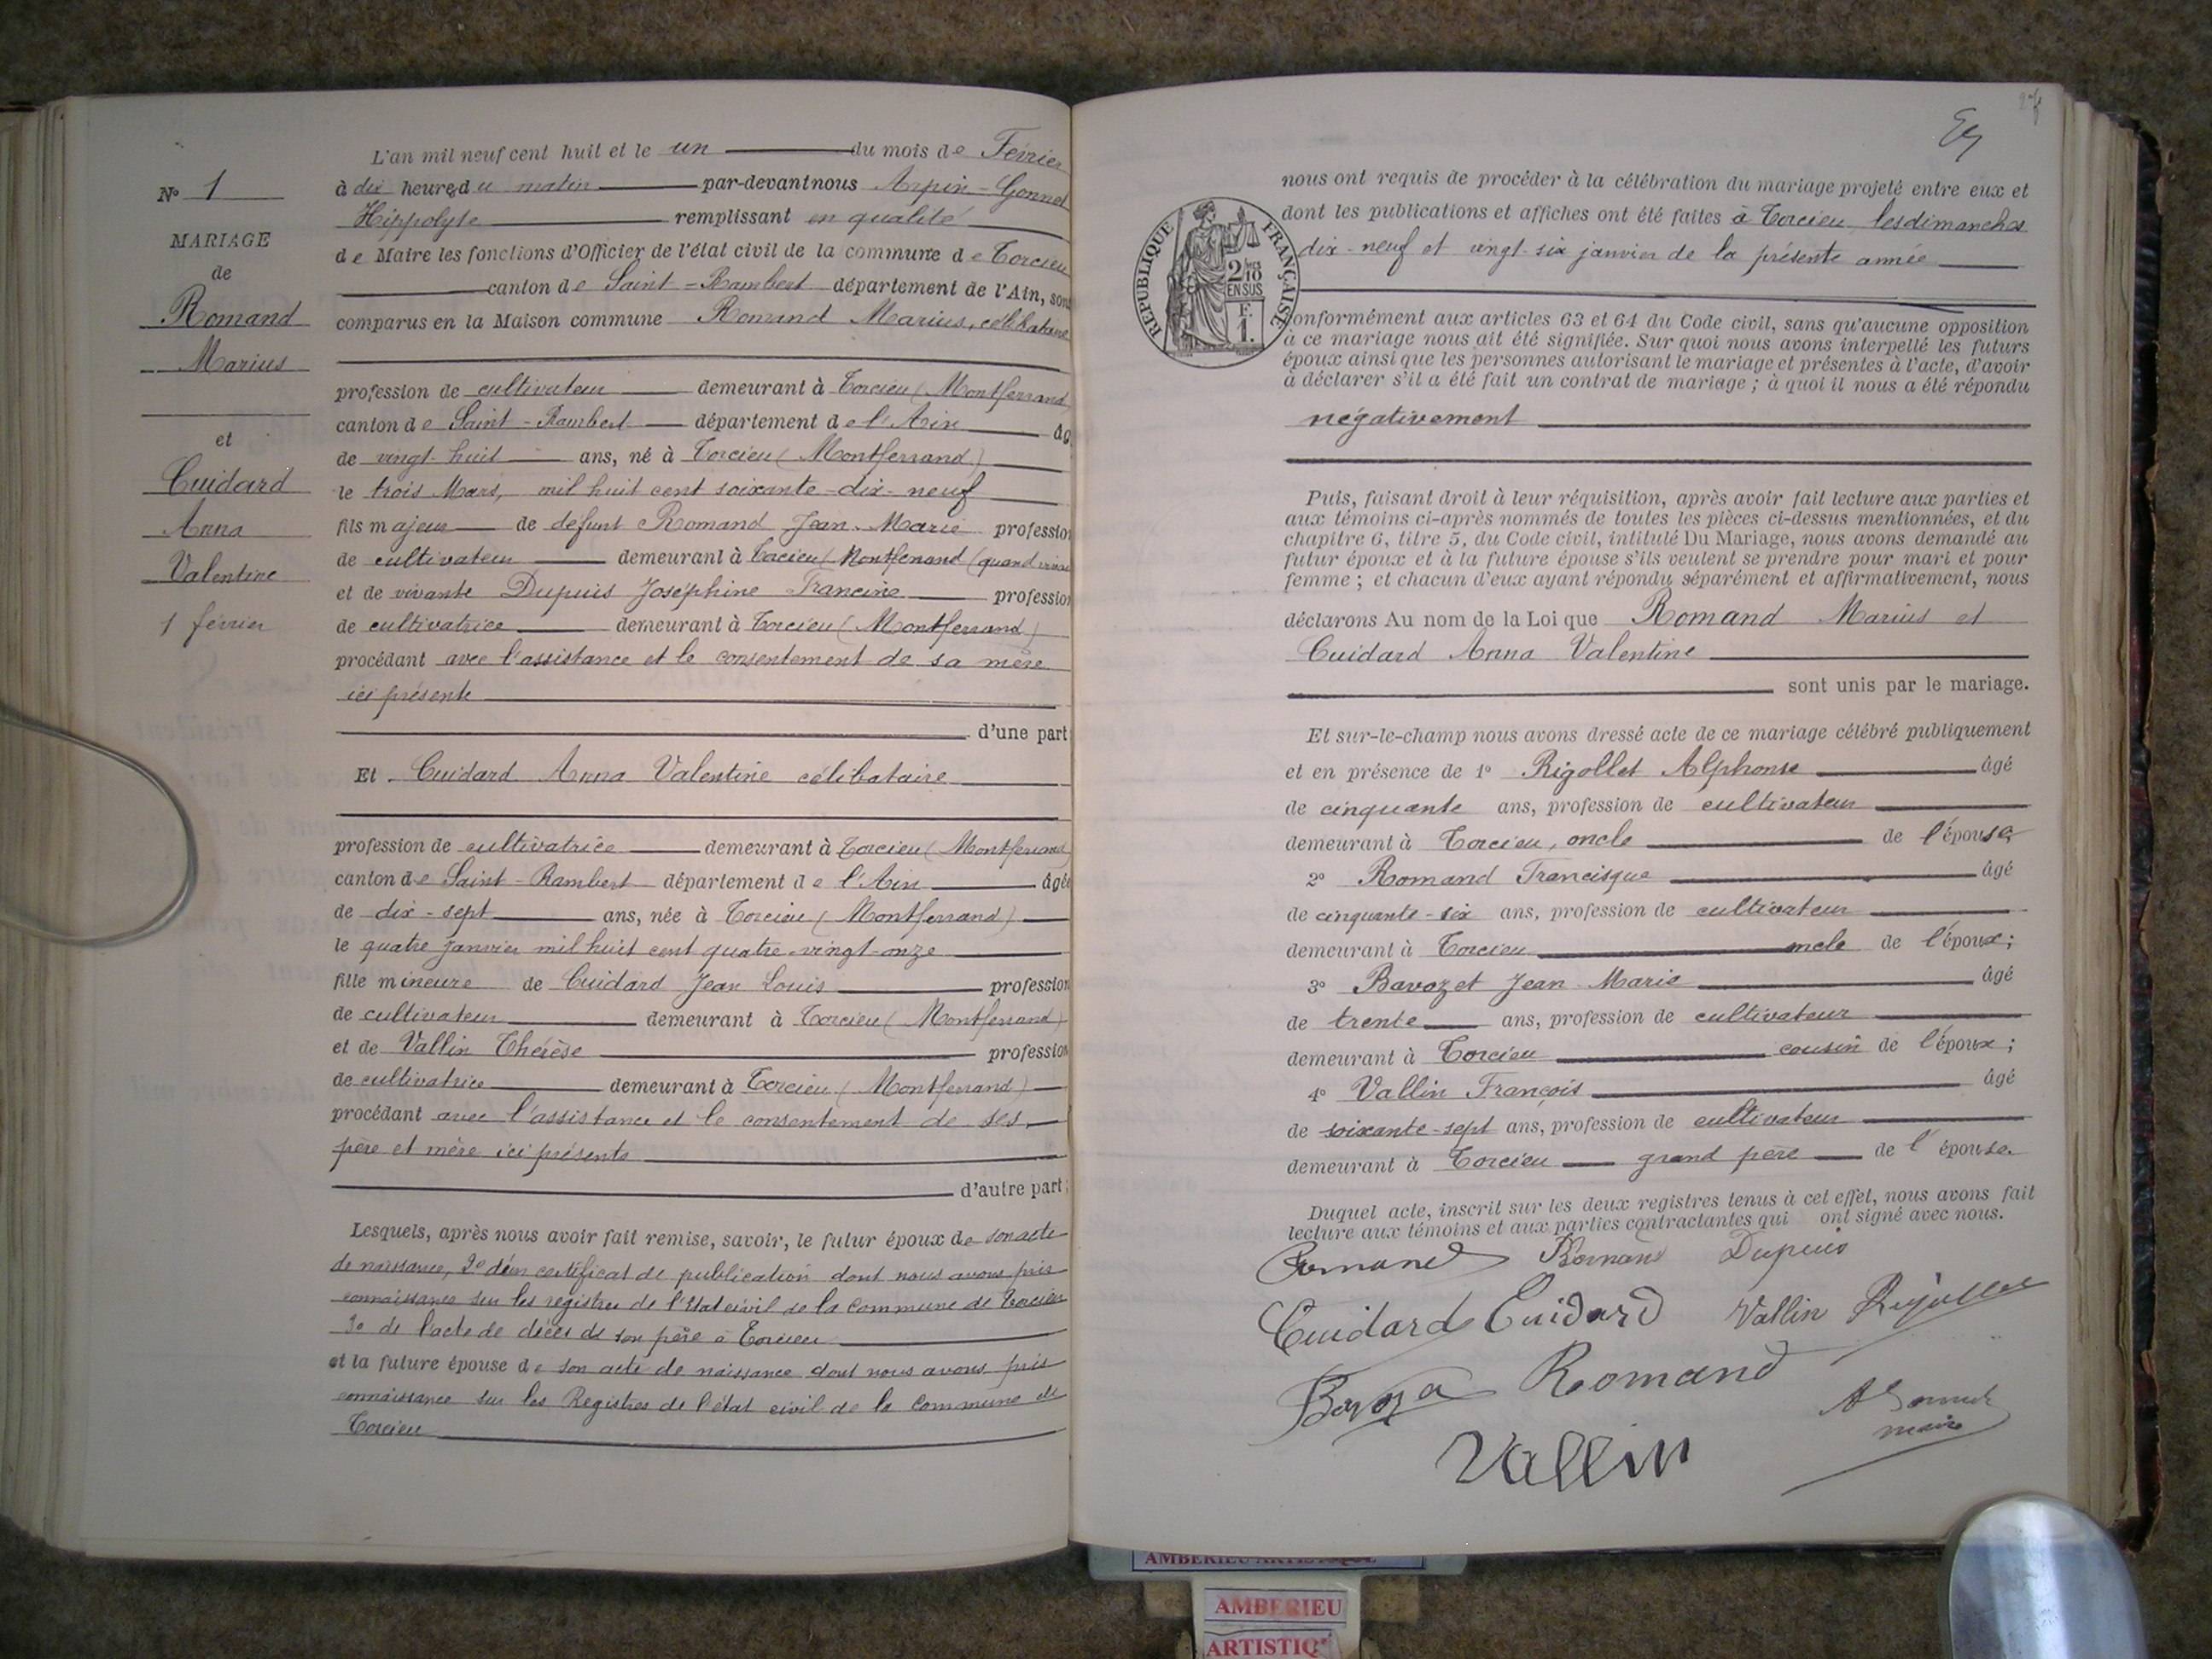 N° 1
MARIAGE
de
Romand
Marius
et
Cuidard
Anna
Valentine
1 février
L'an mil neuf cent huit et le un du mois de Février
à dix heures du matin par-devant nous Arpin-Gonnet
Hippolyte remplissant en qualité
de Maire les fonctions d'Officier de l'état civil de la commune de Torcieu
canton de Saint-Rambert département de l'Ain, sont
comparus en la Maison commune Romand Marius, célibataire
profession de cultivateur demeurant à Torcieu (Montferrand)
canton de Saint-Rambert département de l'Ain âg
de vingt-huit ans, né à Torcieu (Montferrand)
le trois Mars, mil huit cent soixante-dix-neuf
fils majeur de défunt Romand Jean-Marie profession
de cultivateur demeurant à Torcieu (Montferrand (quand vivai
et de vivante Dupuis Joséphine Francine profession
de cultivatrice demeurant à Torcieu (Montferrand)
procédant avec l'assistance et le consentement de sa mère
ici présente
d'une part
Et Cuidard Anna Valentine célibataire
profession de cultivatrice demeurant à Torcieu (Montferrand
canton de Saint-Rambert département de l'Ain âgée
de dix-sept ans, née à Torcieu (Montferrand)
le quatre janvier mil huit cent quatre-vingt-onze
fille mineure de Cuidard Jean Louis profession
de cultivateur demeurant à Torcieu (Montferrand)
et de Vallin Thérèse profession
de cultivatrice demeurant à Torcieu (Montferrand)
procédant avec l'assistance et le consentement de ses
père et mère ici présents
d'autre part;
Lesquels, après nous avoir fait remise, savoir, le futur époux de son acte
de naissance, 2° d'un certificat de publication dont nous avons pris
connaissance sur les registres de l'Etat civil de la commune de Torcieu
3° de l'acte de décès de son père à Torcieu
et la future épouse de son acte de naissance dont nous avons pris
connaissance sur les Registres de l'état civil de la Commune de
Torcieu
nous ont requis de procéder à la célébration du mariage projeté entre eux et
dont les publications et affiches ont été faites à Torcieu, les dimanches
dix-neuf et vingt-six janvier de la présente année
RÉPUBLIQUE FRANÇAISE
2/10
EN SUS
F.
1.
conformément aux articles 63 et 64 du Code civil, sans qu'aucune opposition
à ce mariage nous ait été signifiée. Sur quoi nous avons interpellé les futurs
époux ainsi que les personnes autorisant le mariage et présentes à l'acte, d'avoir
à déclarer s'il a été fait un contrat de mariage ; à quoi il nous a été répondu
négativement
Puis, faisant droit à leur réquisition, après avoir fait lecture aux parties et
aux témoins ci-après nommés de toutes les pièces ci-dessus mentionnées, et du
chapitre 6, titre 5, du Code civil, intitulé Du Mariage, nous avons demandé au
futur époux et à la future épouse s'ils veulent se prendre pour mari et pour
femme ; et chacun d'eux ayant répondu séparément et affirmativement, nous
déclarons Au nom de la Loi que Romand Marius et
Cuidard Anna Valentine
sont unis par le mariage.
Et sur-le-champ nous avons dressé acte de ce mariage célébré publiquement
et en présence de 1° Rigollet Alphonse âgé
de cinquante ans, profession de cultivateur
demeurant à Torcieu, oncle de l'épouse,
2° Romand Francisque âgé
de cinquante-six ans, profession de cultivateur
demeurant à Torcieu oncle de l'époux;
3° Bavozet Jean Marie âgé
de trente ans, profession de cultivateur
demeurant à Torcieu cousin de l'époux ;
4° Vallin François âgé
de soixante-sept ans, profession de cultivateur
demeurant à Torcieu grand père de l'épouse.
Duquel acte, inscrit sur les deux registres tenus à cet effet, nous avons fait
lecture aux témoins et aux parties contractantes qui ont signé avec nous.
Romand Romand Dupuis
Cuidard Cuidard Vallin Rigollet
Romand
maire
Vallin
AMBERIEU ARTISTIQUE
AMBERIEU
ARTISTIQ